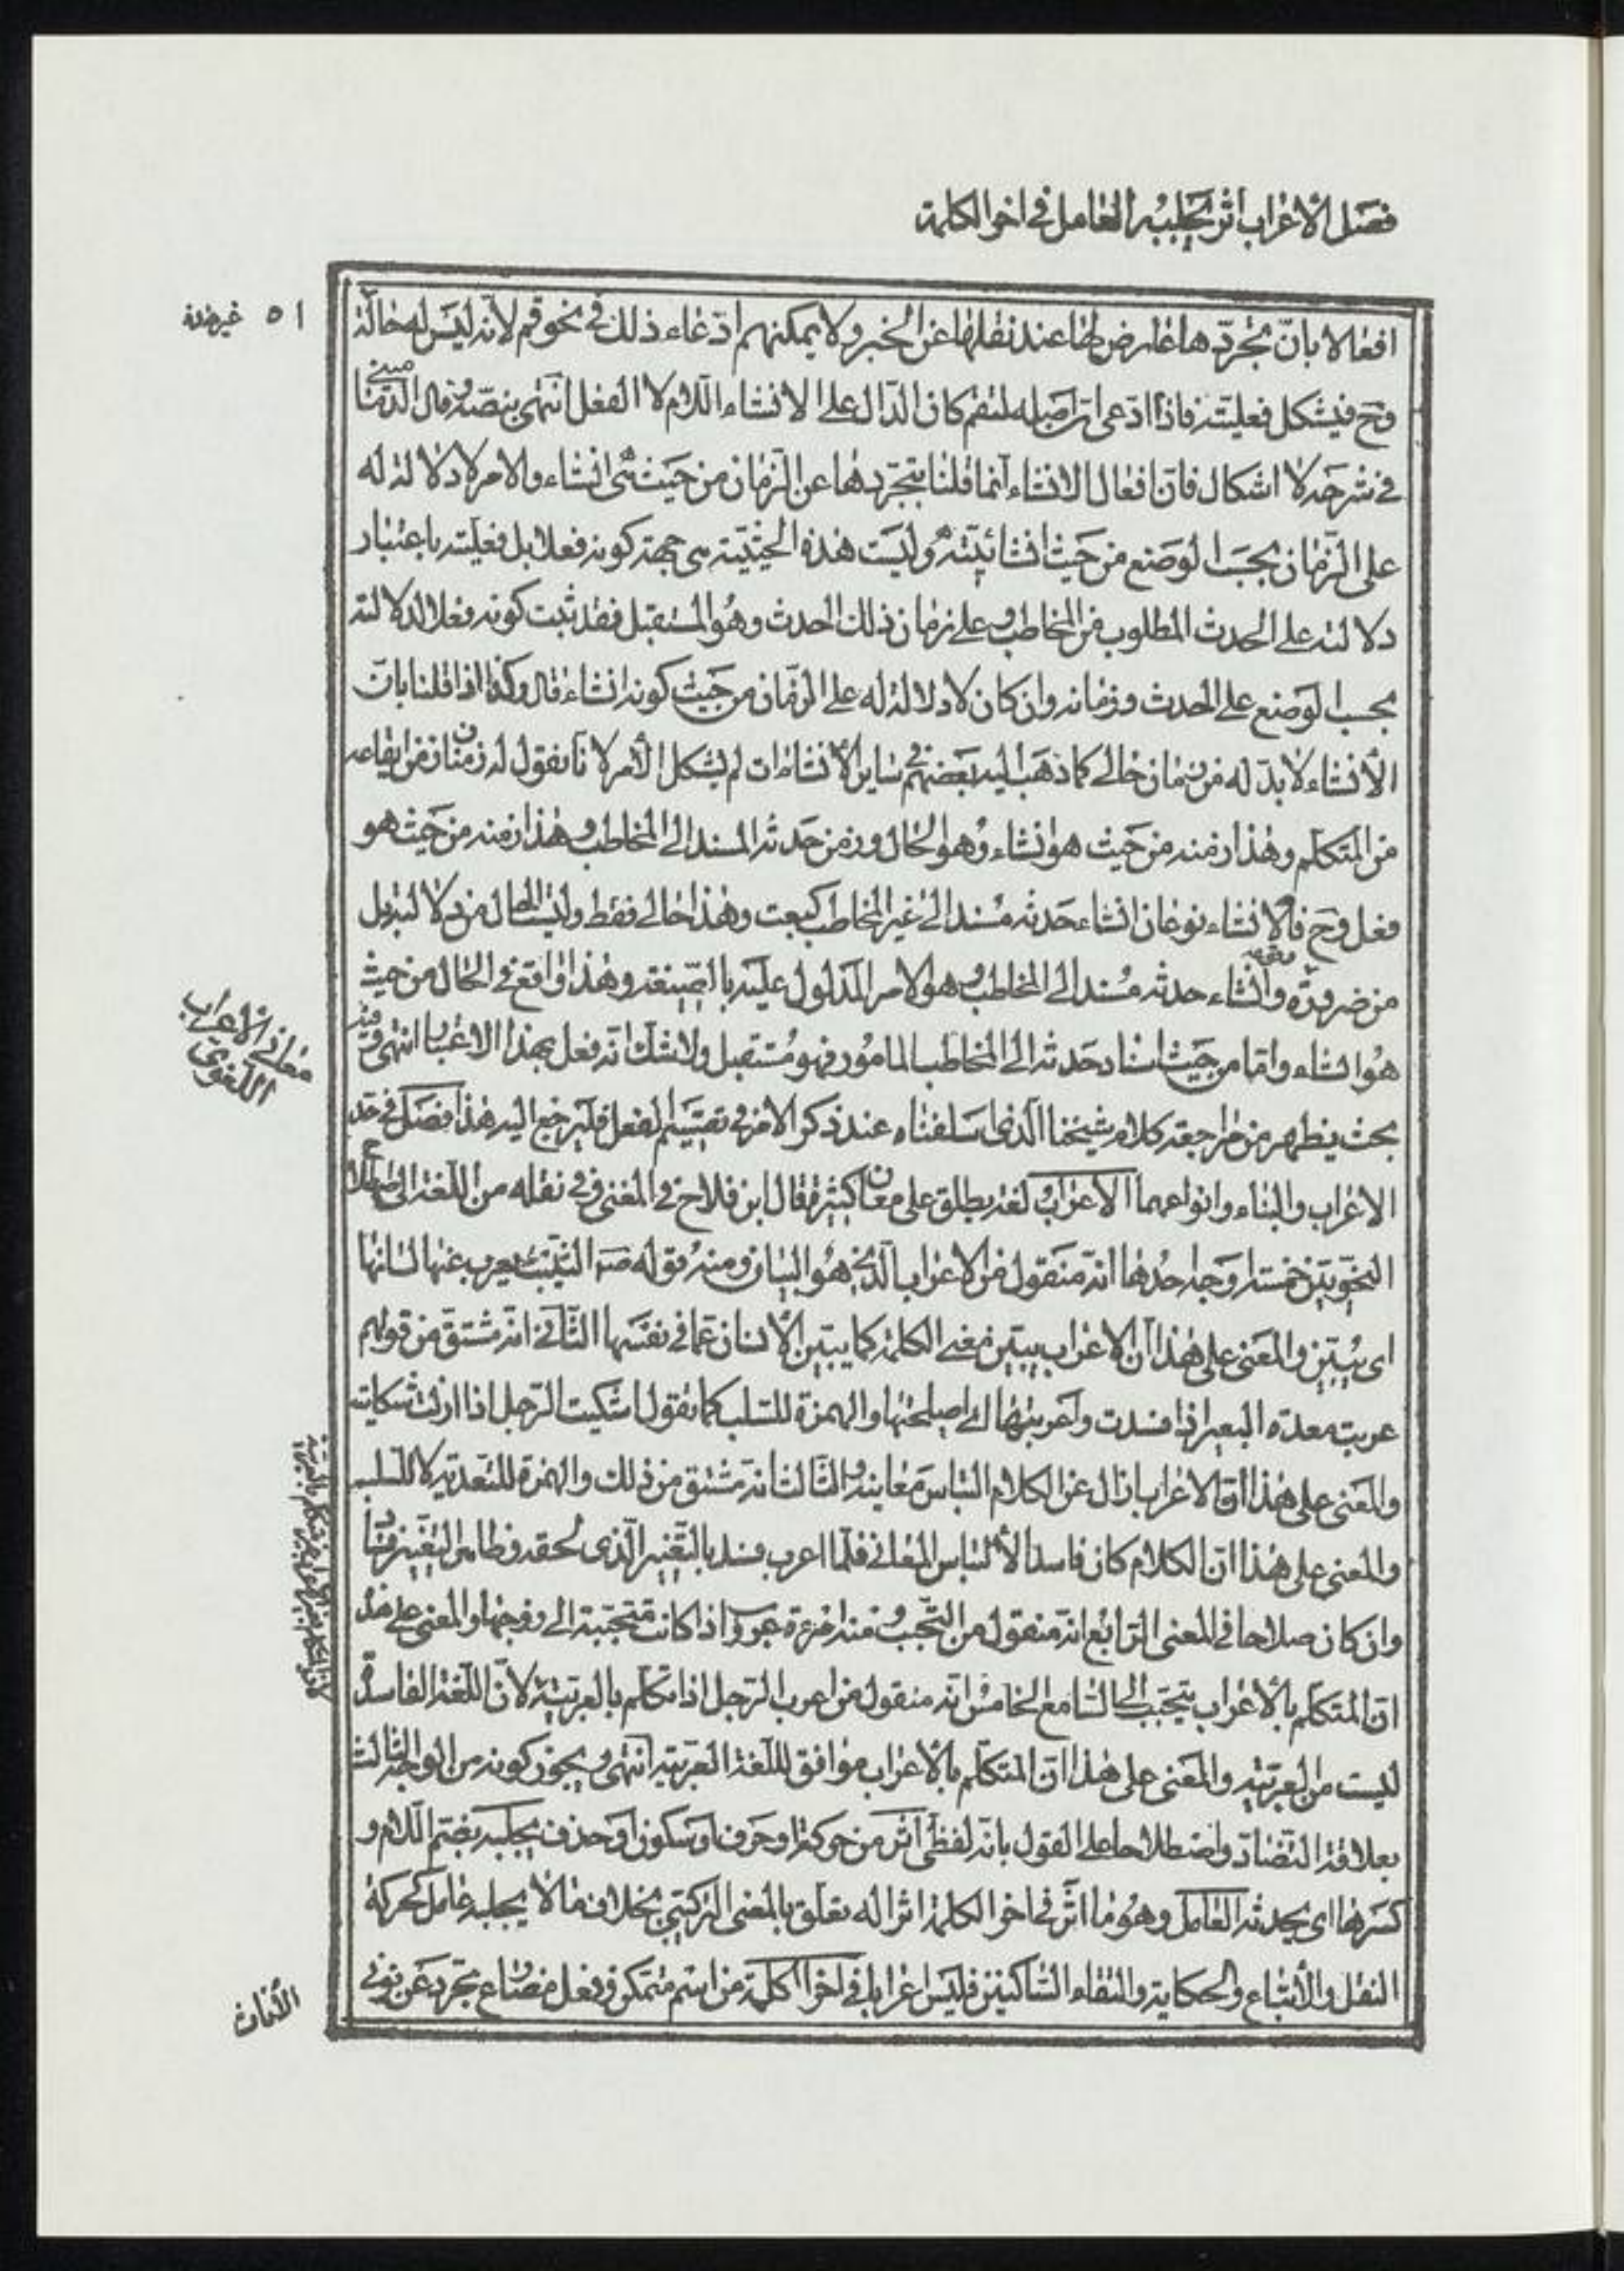 فصل الاعراب اثر يجلبه العامل في اخر الكلمة
٥١ غير هذه
افعالا بانّ تجرّدها عارض لها عند نقلها عن الخبر ولا يمكنهم ادّعاء ذلك في نحو قم لانه ليس له حالة
وح فيشكل فعليته فاذا ادّعى انّ اصله لتقم كان الدّال على الانشاء اللام لا الفعل انتهى بنصّه وقال الدّماميني
في شرحه لا اشكال فانّ افعال الانشاء انما قلنا بتجرّدها عن الزمان من حيث هي انشاء والامر لا دلالة له
على الزّمان بحسب الوضع من حيث انشائيّته وليست هذه الحيثيّة هي جهة كونه فعلا بل فعليته باعتبار
دلالته على الحدث المطلوب من المخاطب وعلى زمان ذلك الحدث وهو المستقبل فقد ثبت كونه فعلا لدلالته
بحسب الوضع على الحدث وزمانه وان كان لا دلالة له على الزمان من حيث كونه انشاء قال وكذا اذا قلنا بانّ
الانشاء لا بدّ له من زمان حالي كما ذهب اليه بعضهم في ساير الانشاءات لم يشكل الامر لانّا نقول له زمنان زمن ايقاعه
من المتكلم وهذا زمنه من حيث هو انشاء وهو الحال وزمن حدثه المسند الى المخاطب وهذا زمنه من حيث هو
فعل وح فالانشاء نوعان انشاء حدثه مسند الى غير المخاطب كبعت وهذا حالي فقط وليس الحال مدلا لتبديل
من ضرورة وقوعه وانشاء حدثه مسند الى المخاطب وهو الامر المدلول عليه بالصيغة وهذا واقع في الحال من حيث
هو انشاء وامّا من حيث اسناد حدثه الى المخاطب المامور فهو مستقبل ولا شك انّه فعل بهذا الاعتبار انتهى وفيه
بحث يظهر من مراجعة كلام شيخنا الذي اسلفناه عند ذكر الامر في تقسيم الفعل فليرجع اليه هذا فصل في حد
معاني الاعراب اللغوي
الاعراب والبناء وانواعهما الاعراب لغة يطلق على معان كثيرة قال ابن فلاح في المغني وفي نقله من اللغة الى اصطلاح
النحويّين خمسة اوجه احدها انّه منقول من الاعراب الّذي هو البيان ومنه قوله ص الثيّب يعرب عنها لسانها
اى يبيّن والمعنى على هذا انّ الاعراب يبيّن معنى الكلمة كما يبيّن الانسان عمّا في نفسها الثّاني انّه مشتق من قولهم
عربت معدة البعير اذا فسدت واعربتها اى اصلحتها والهمزة للسّلب كما تقول اشكيت الرّجل اذا ازلت شكايته
والمعنى على هذا انّ الاعراب ازال عن الكلام التباس معانيه والثّالث انّه مشتق من ذلك والهمزة للتعدية لا للسلب
والمعنى على هذا انّ الكلام كان فاسدا لالتباس المعاني فلمّا اعرب فسد بالتّغيير الّذي لحقه وظاهر التغيير فساد
وان كان صلاحا في المعنى الرّابع انّه منقول من التّحبّب ومنه امرءة عروب اذا كانت متحبّبة الى زوجها والمعنى على هذا
انّ المتكلّم بالاعراب يتحبّب الى السّامع الخامس انّه منقول من اعرب الرّجل اذا تكلّم بالعربيّة لانّ اللّغة الفاسدة
ليست من العربيّة والمعنى على هذا انّ المتكلّم بالاعراب موافق للّغة العربيّة انتهى ويجوز كونه من الوجه الثالث
بعلاقة التّضادّ واصطلاحا على القول بانّه لفظي اثر من حركة او حرف او سكون او حذف يجلبه بضم اللام و
كسرها اى يحدثه العامل وهو ما اثّر في اخر الكلمة اثرا له تعلّق بالمعنى التركيبي بخلاف ما لا يجلبه عامل كحركة
النقل والاتباع والحكاية والتقاء السّاكنين فليس اعرابا في اخر الكلمة من اسم متمكن وفعل مضارع تجرد عن نوني
الاناث